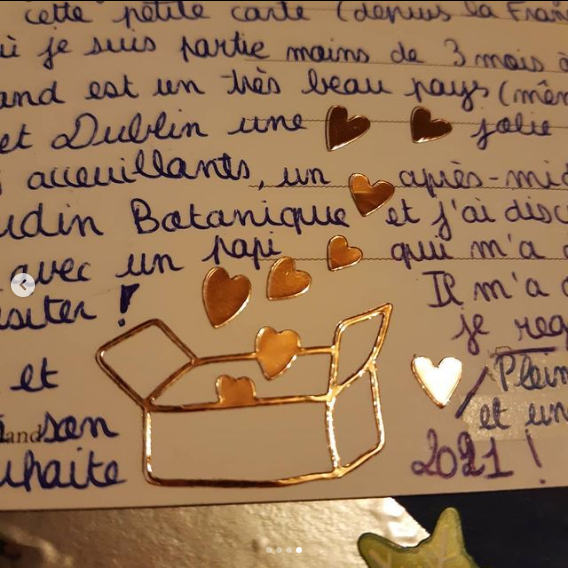 cette petite carte (depuis la Fran
ù je suis partie moins de 3 mois à
and est un très beau pays (mêm
et Dublin une jolie
accueuillants, un après-mid
udin Botanique et j'ai disc
avec un papi qui m'a
isiter ! Il m'a
je reg
et Plein
and son et un
uhaite 2021 !